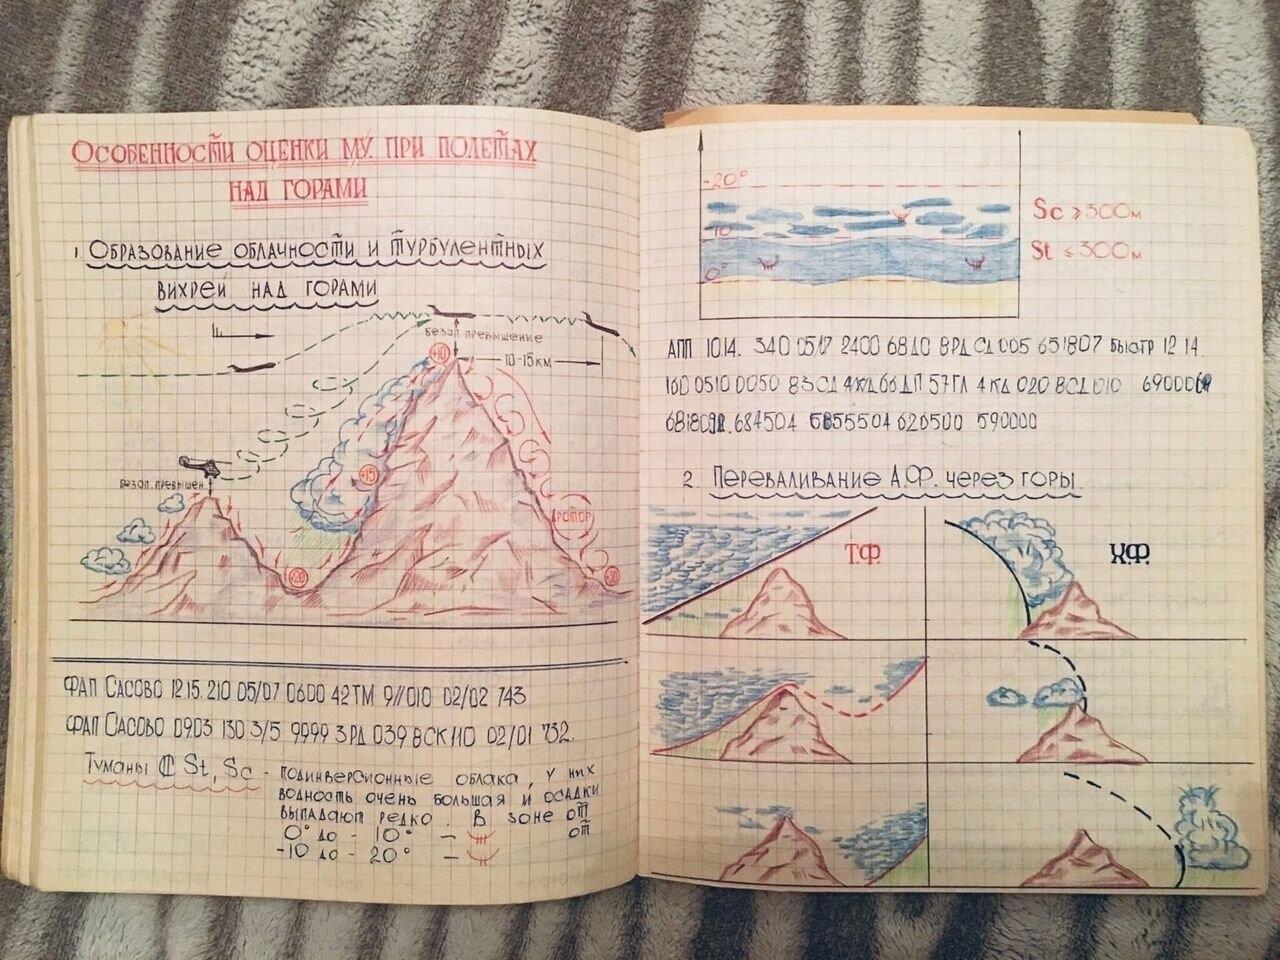 Особенности оценки МУ при полетах
над горами
1. Образование облачности и турбулентных
вихрей над горами
безоп. превышение
+10
10-15км
безоп. превышен.
+15
ротор
+20
+30
ФАП Сасово 1215 210 05/07 0600 42ТМ 9//010 02/02 743
ФАП Сасово 0903 130 3/5 9999 3РД 039 8СК110 02/01 732.
Туманы St, Sc - подинверсионные облака, у них
водность очень большая и осадки
выпадают редко. В зоне от
0° до - 10° - от
-10 до - 20° -
-20°
10
0°
Sc ≥300м
St ≤300м
АПП 1014. 340 05/7 2400 68До 8РД СД 005 651807 быстр 1214.
160 0510 0050 83СД 4КД 66ДП 57ГЛ 4КД 020 8СД 010
684504 620500 590000
2. Переваливание А.Ф. через горы.
Т.Ф.
Х.Ф.